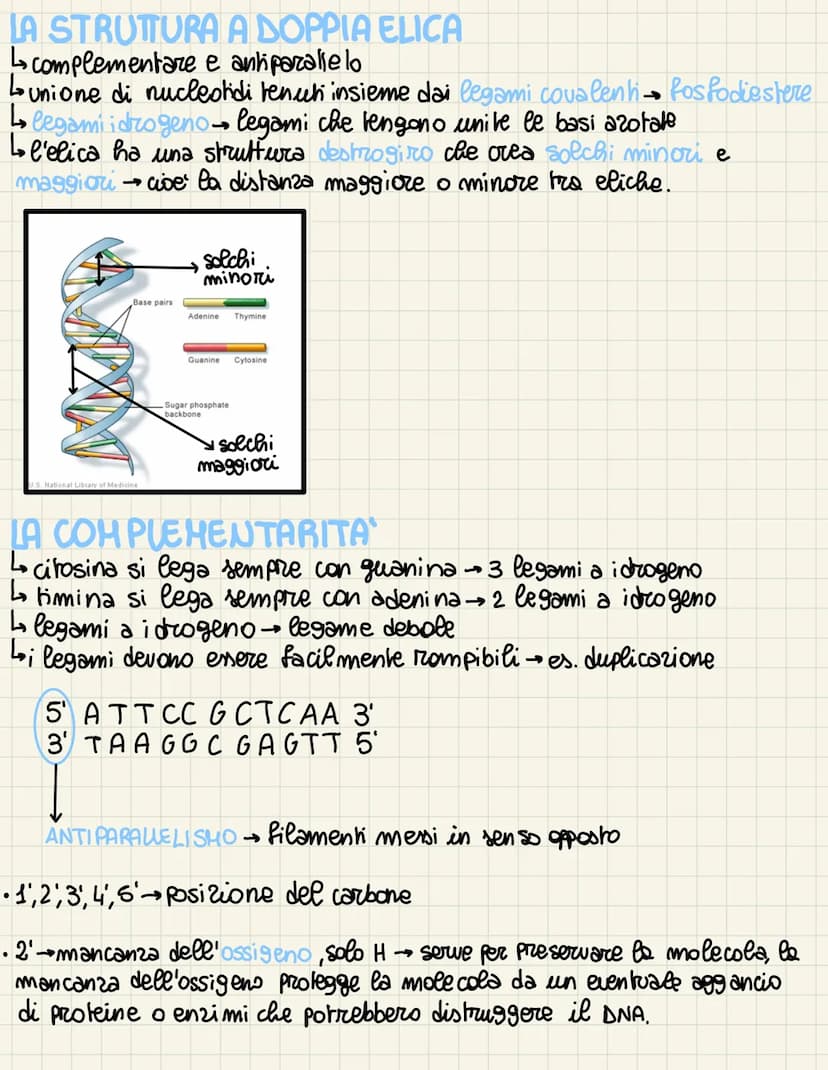 LA STRUTTURA A DOPPIA ELICA
↳ complementare e antiparallelo
↳ unione di nucleotidi tenuti insieme dai legami covalenti → fosfodiestere
↳ legami idrogeno → legami che tengono unite le basi azotate
↳ l'elica ha una struttura destrogiro che crea solchi minori e
maggiori → cioe' la distanza maggiore o minore tra eliche.
solchi
minori
Base pairs
Adenine Thymine
Guanine Cytosine
Sugar phosphate
backbone
solchi
maggiori
U.S. National Library of Medicine
LA COMPLEMENTARITA'
↳ citosina si lega sempre con guanina → 3 legami a idrogeno
↳ timina si lega sempre con adenina → 2 legami a idrogeno
↳ legami a idrogeno → legame debole
↳ i legami devono essere facilmente rompibili → es. duplicazione
5' ATTCC GCTCAA 3'
3' TAAGGC GAGTT 5'
ANTIPARALLELISMO → filamenti messi in senso opposto
• 1', 2', 3', 4', 5' → posizione del carbone
• 2' → mancanza dell'ossigeno, solo H → serve per preservare la molecola, la
mancanza dell'ossigeno protegge la molecola da un eventuale aggancio
di proteine o enzimi che potrebbero distruggere il DNA.